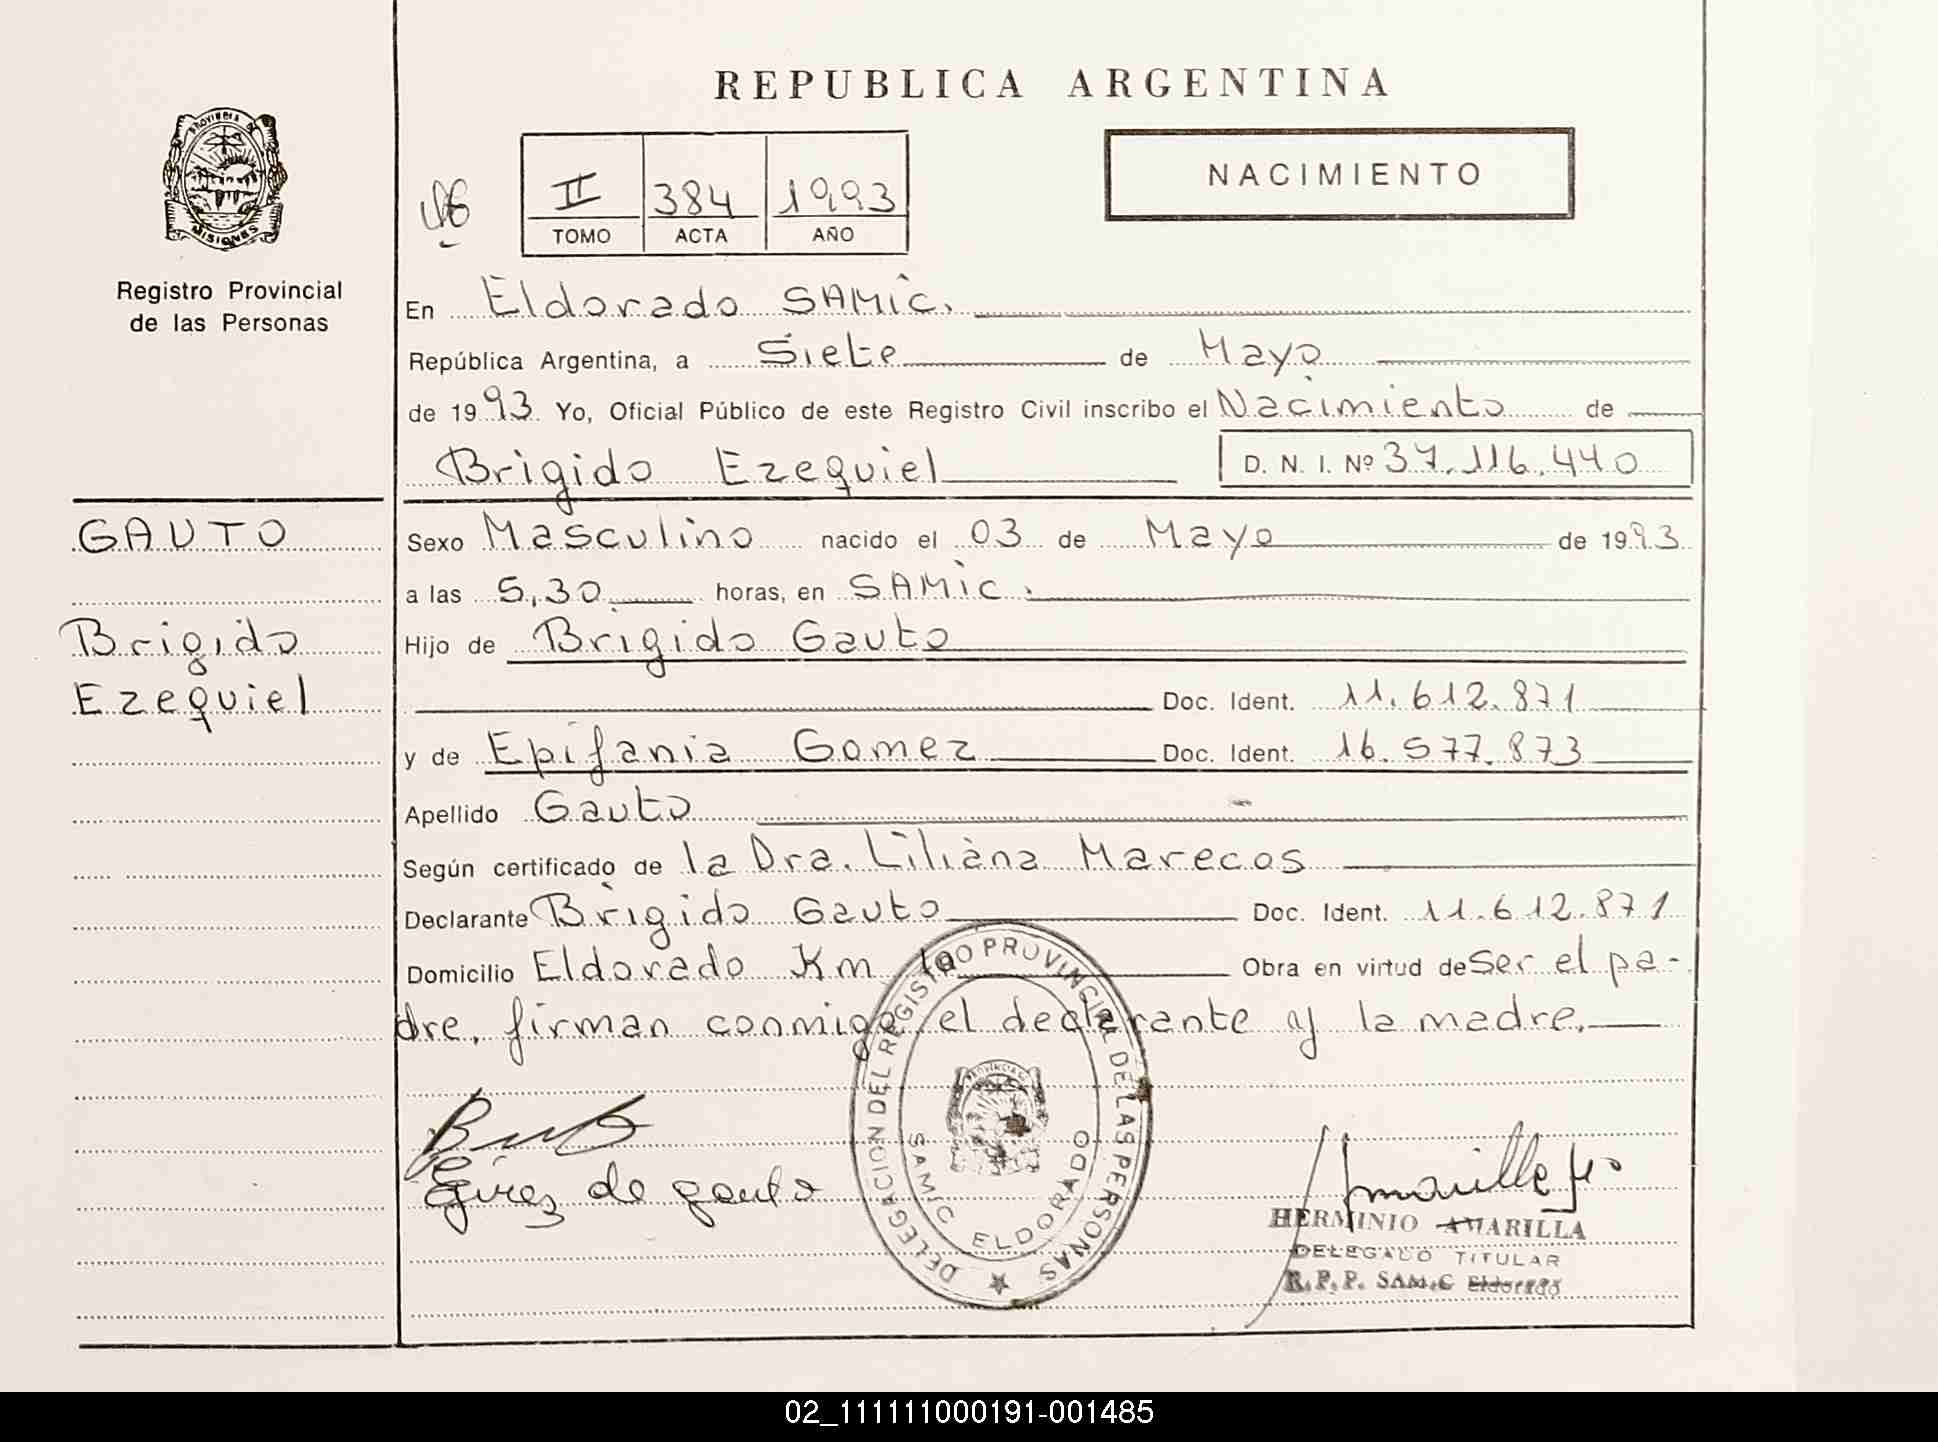 REPUBLICA ARGENTINA
PROVINCIA DE
MISIONES
Registro Provincial
de las Personas
II 384 1993
TOMO ACTA AÑO
NACIMIENTO
En Eldorado SAMIC.
República Argentina, a Siete de Mayo
de 1993 Yo, Oficial Público de este Registro Civil inscribo el Nacimiento de
Brigido Ezequiel D. N. I. Nº 37.116.440
GAUTO
Brigido
Ezequiel
Sexo Masculino nacido el 03 de Mayo de 1993
a las 5,30 horas, en SAMIC.
Hijo de Brigido Gauto
Doc. Ident. 11.612.871
y de Epifania Gomez Doc. Ident. 16.577.873
Apellido Gauto
Según certificado de la Dra. Liliana Marecos
Declarante Brigido Gauto Doc. Ident. 11.612.871
Domicilio Eldorado Km Obra en virtud de ser el pa-
dre, firman conmigo el declarante y la madre.
DELEGACION DEL REGISTRO PROVINCIAL DE LAS PERSONAS
SAMIC ELDORADO
de gauto
HERMINIO AMARILLA
DELEGADO TITULAR
R. P. P. SAMIC Eldorado
02_111111000191-001485